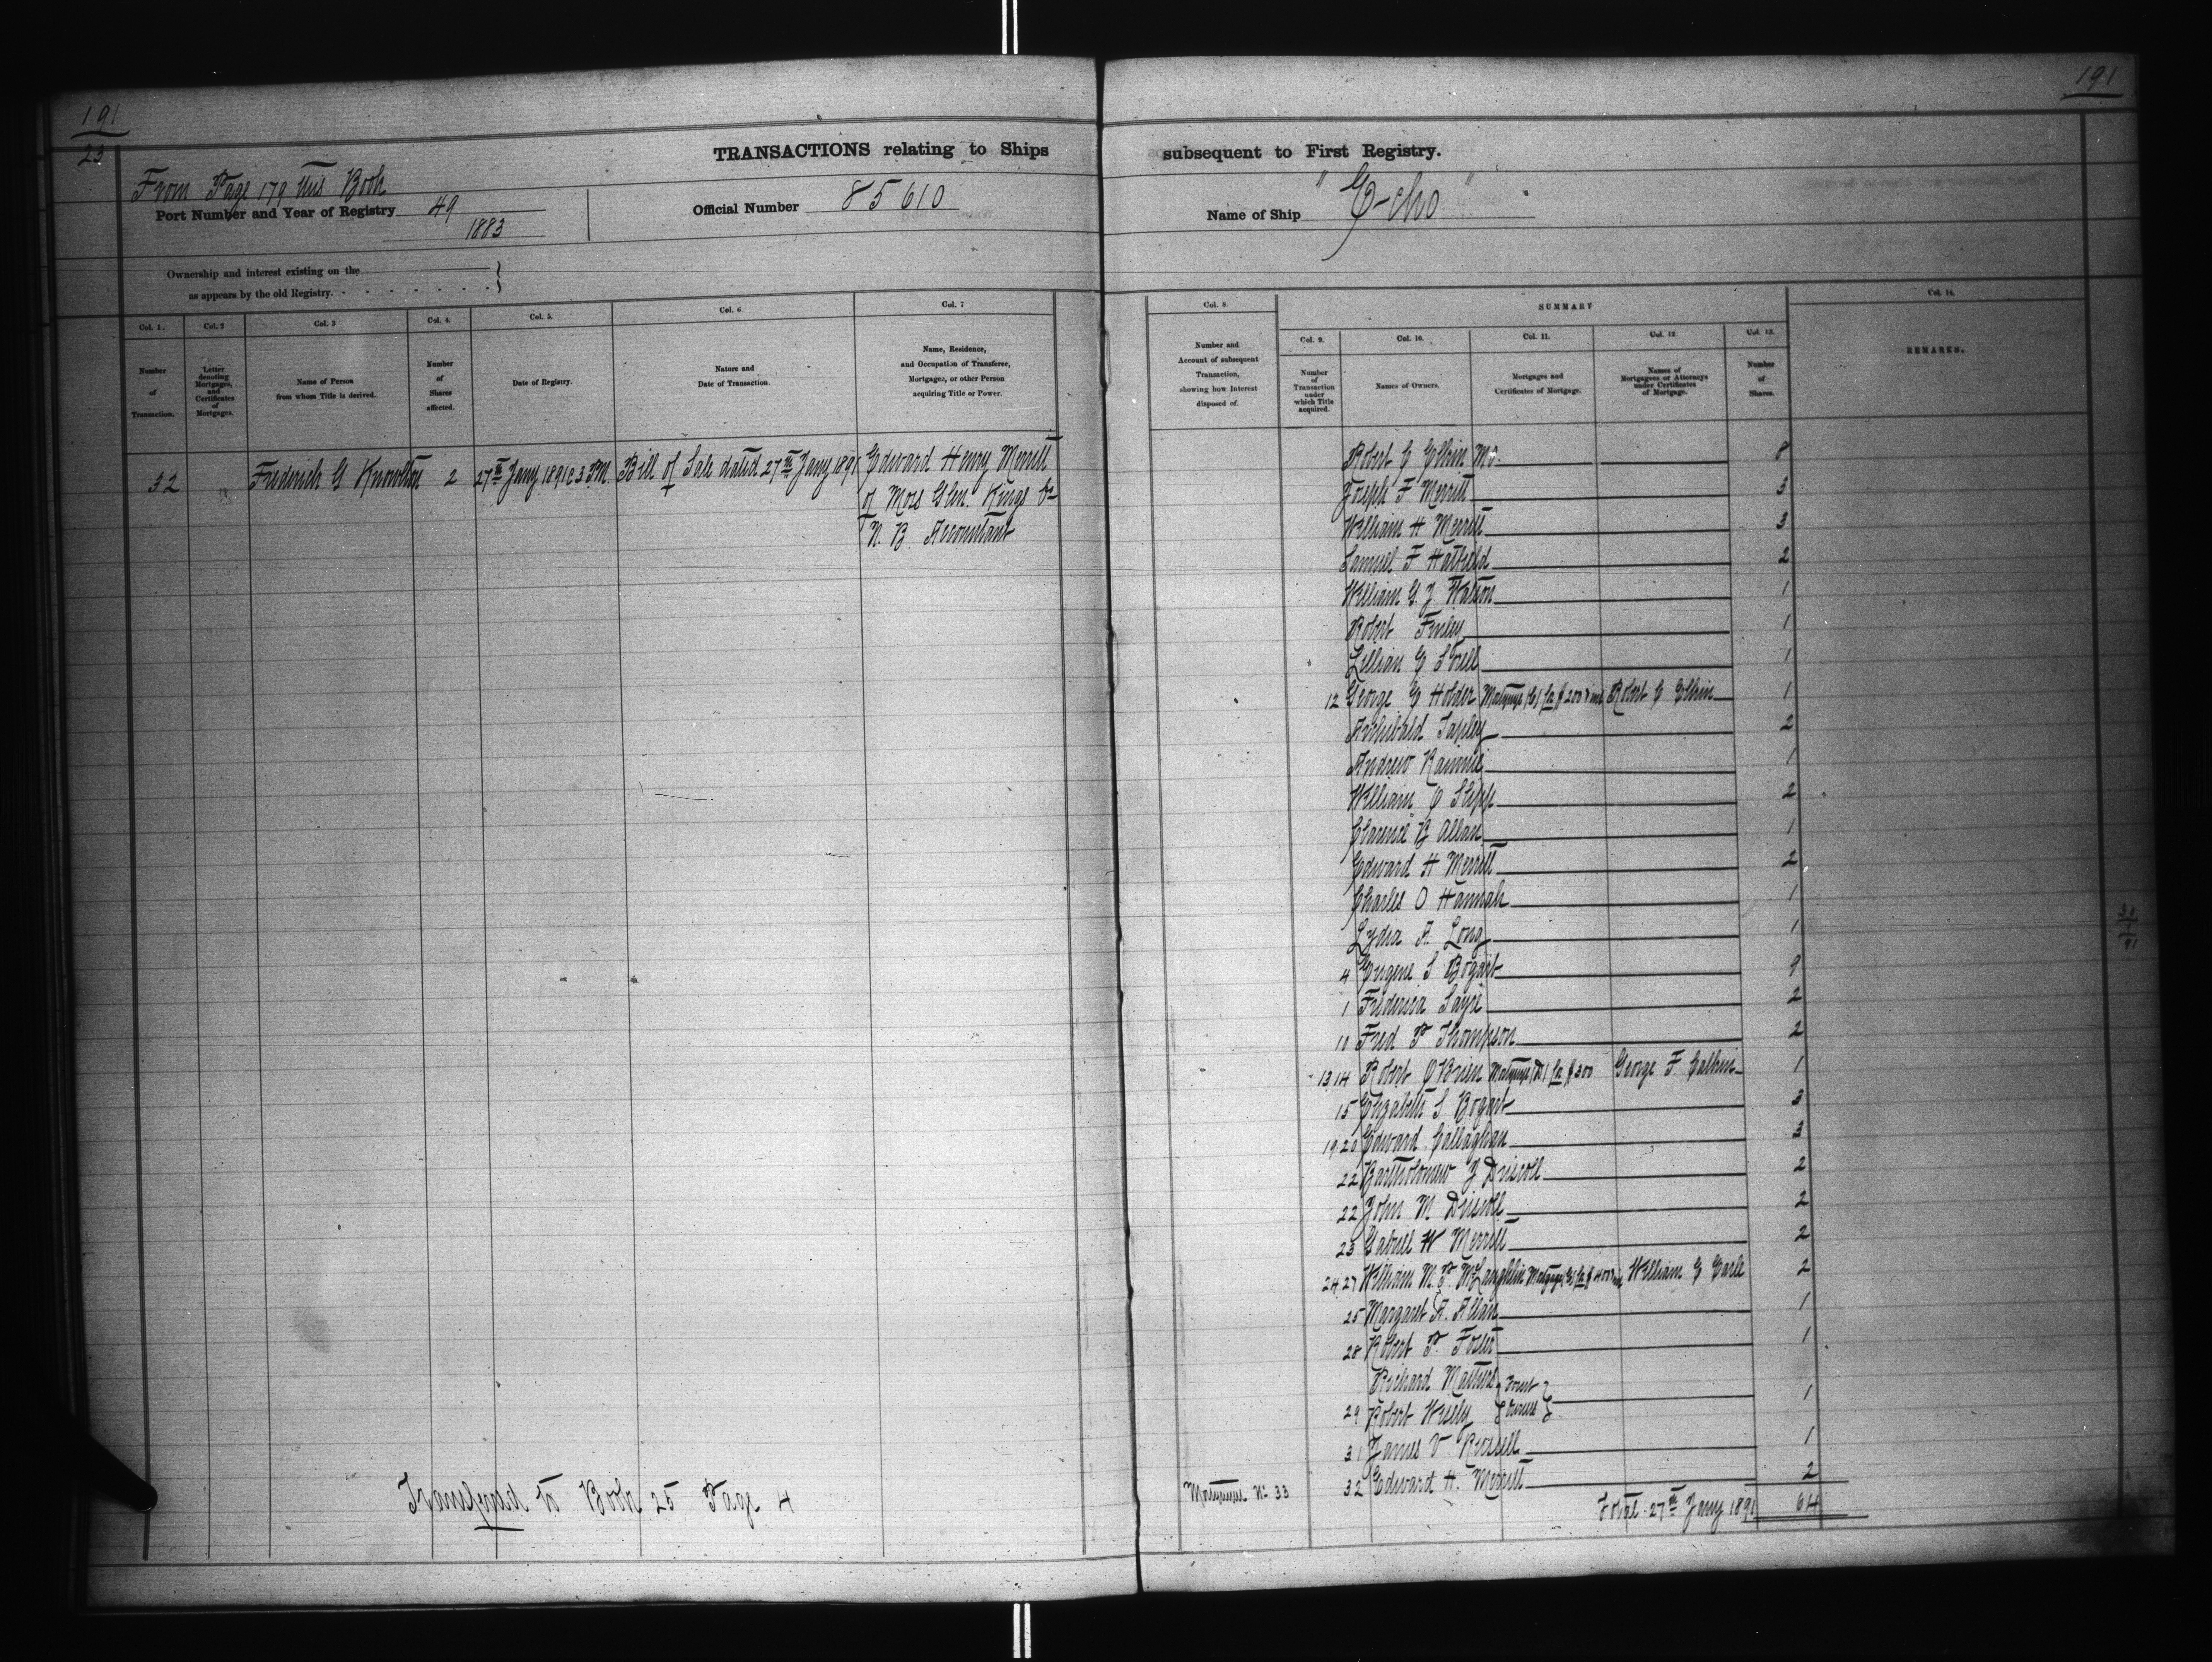 191
23
TRANSACTIONS relating to Ships
From Page 179 this Book
Port Number and Year of Registry 49
1883
Official Number 85610
Ownership and interest existing on the
as appears by the old Registry.
Col. 1. Col. 2 Col. 3 Col. 4. Col. 5. Col. 6 Col. 7
Number
of
Transaction.
Letter
denoting
Mortgages,
and
Certificates
of
Mortgages.
Name of Person
from whom Title is derived.
Number
of
Shares
affected.
Date of Registry.
Nature and
Date of Transaction.
Name, Residence,
and Occupation of Transferee,
Mortgagee, or other Person
acquiring Title or Power.
32 Frederick G Knowlton 2 27th Jany 1891 @ 3 PM. Bill of Sale dated 27th Jany 1891 Edward Henry Merritt
of Moss Glen. Kings Co
N. B. Accountant
Transferred to Book 25 Page 4
191
subsequent to First Registry.
Name of Ship "Echo"
Col. 8.
Number and
Account of subsequent
Transaction,
showing how Interest
disposed of.
SUMMARY
Col. 9. Col. 10. Col. 11. Col. 12 Col. 13.
Number
of
Transaction
under
which Title
acquired.
Names of Owners.
Mortgages and
Certificates of Mortgage.
Names of
Mortgagees or Attorneys
under Certificates
of Mortgage.
Number
of
Shares.
Col. 14.
REMARKS.
Robert C Elkin M.O. 8
Joseph F Merritt 3
William H Merritt 3
Samuel F Hatfield 2
William G. J Watson 1
Robert Finley 1
Lillian E 1
12 George E Holder Mortgage (C) for $200 & int Robert C Elkin 1
Archibald Tapley 2
Andrew Rainnie 1
William C Slipp 2
Clarence B Allan 1
Edward H Merritt 2
Charles O Hannah 1
Lydia A. Long 1
4 Eugene S Bogart 9
1 Fredericka Sayre 2
10 Fred P Thompson 2
13 14 Robert O'Brien Mortgage (D) for $300 George F Calkin 1
15 Elizabeth S. Bogart 3
19 20 Edward Callaghan 3
22 Bartholomew J Driscoll 2
22 John M Driscoll 2
23 Gabriel W Merritt 2
24 27 William M. P. McLaughlin Mortgage for $400 William E Earle 2
25 Margaret A. Allan 1
28 Robert P. Foster 1
Richard Matthews } Joint
29 Robert Wisely } Owners 1
31 James V Russell 1
Mortgages No 33
32 Edward H. Merritt 2
Total 27th Jany 1891 64
31
1
91